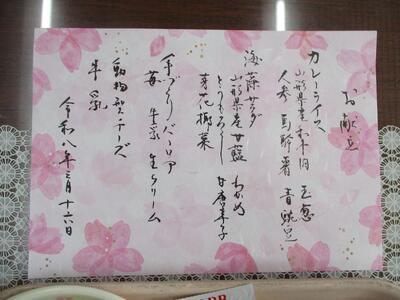 お献立
カレーライス
山形県産和牛肉 玉葱
人参 馬鈴薯 青豌豆
海藻サラダ わかめ
山形県産甘藍 甘唐辛子
とうもろこし
芽花椰菜
手づくりババロア
苺 牛乳 生クリーム
動物型チーズ
牛乳
令和八年三月十六日